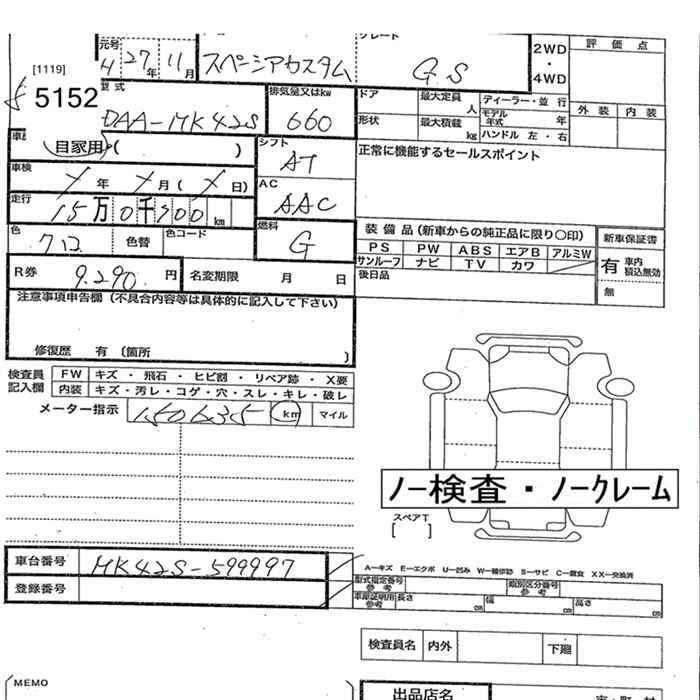 元号 グレード 評価点
27年 11月 スペーシアカスタム GS 2WD・4WD
[1119]
5152
型式 排気量又はkw ドア 最大定員 人 ディーラー・並行 外装 内装
DAA-MK42S 660 形状 最大積載 kg モデル年式 年
ハンドル 左・右
自家用・( ) シフト AT 正常に機能するセールスポイント
車検 年 月( 日) AC AAC
走行 15万0千900km
色 クロ 色替 色コード 燃料 G 装備品(新車からの純正品に限り○印) 新車保証書
PS PW ABS エアB アルミW 有 車内積込無効
サンルーフ ナビ TV カワ
R券 9,290円 名変期限 月 日 後日品 無
注意事項申告欄(不具合内容等は具体的に記入して下さい)
修復歴 有〔箇所 〕
検査員記入欄 FW キズ・飛石・ヒビ割・リペア跡・X要
内装 キズ・汚レ・コゲ・穴・スレ・キレ・破レ
メーター指示 150635 km マイル
ノー検査・ノークレーム
スペアT
[ ]
車台番号 MK42S-599997
A-キズ E-エクボ U-凹み W-補修跡 S-サビ C-腐食 XX-交換済
登録番号 型式指定番号 参考 類別区分番号 参考
車庫証明用 参考 長さ cm 幅 cm 高さ cm
検査員名 内外 下廻
MEMO
出品店名